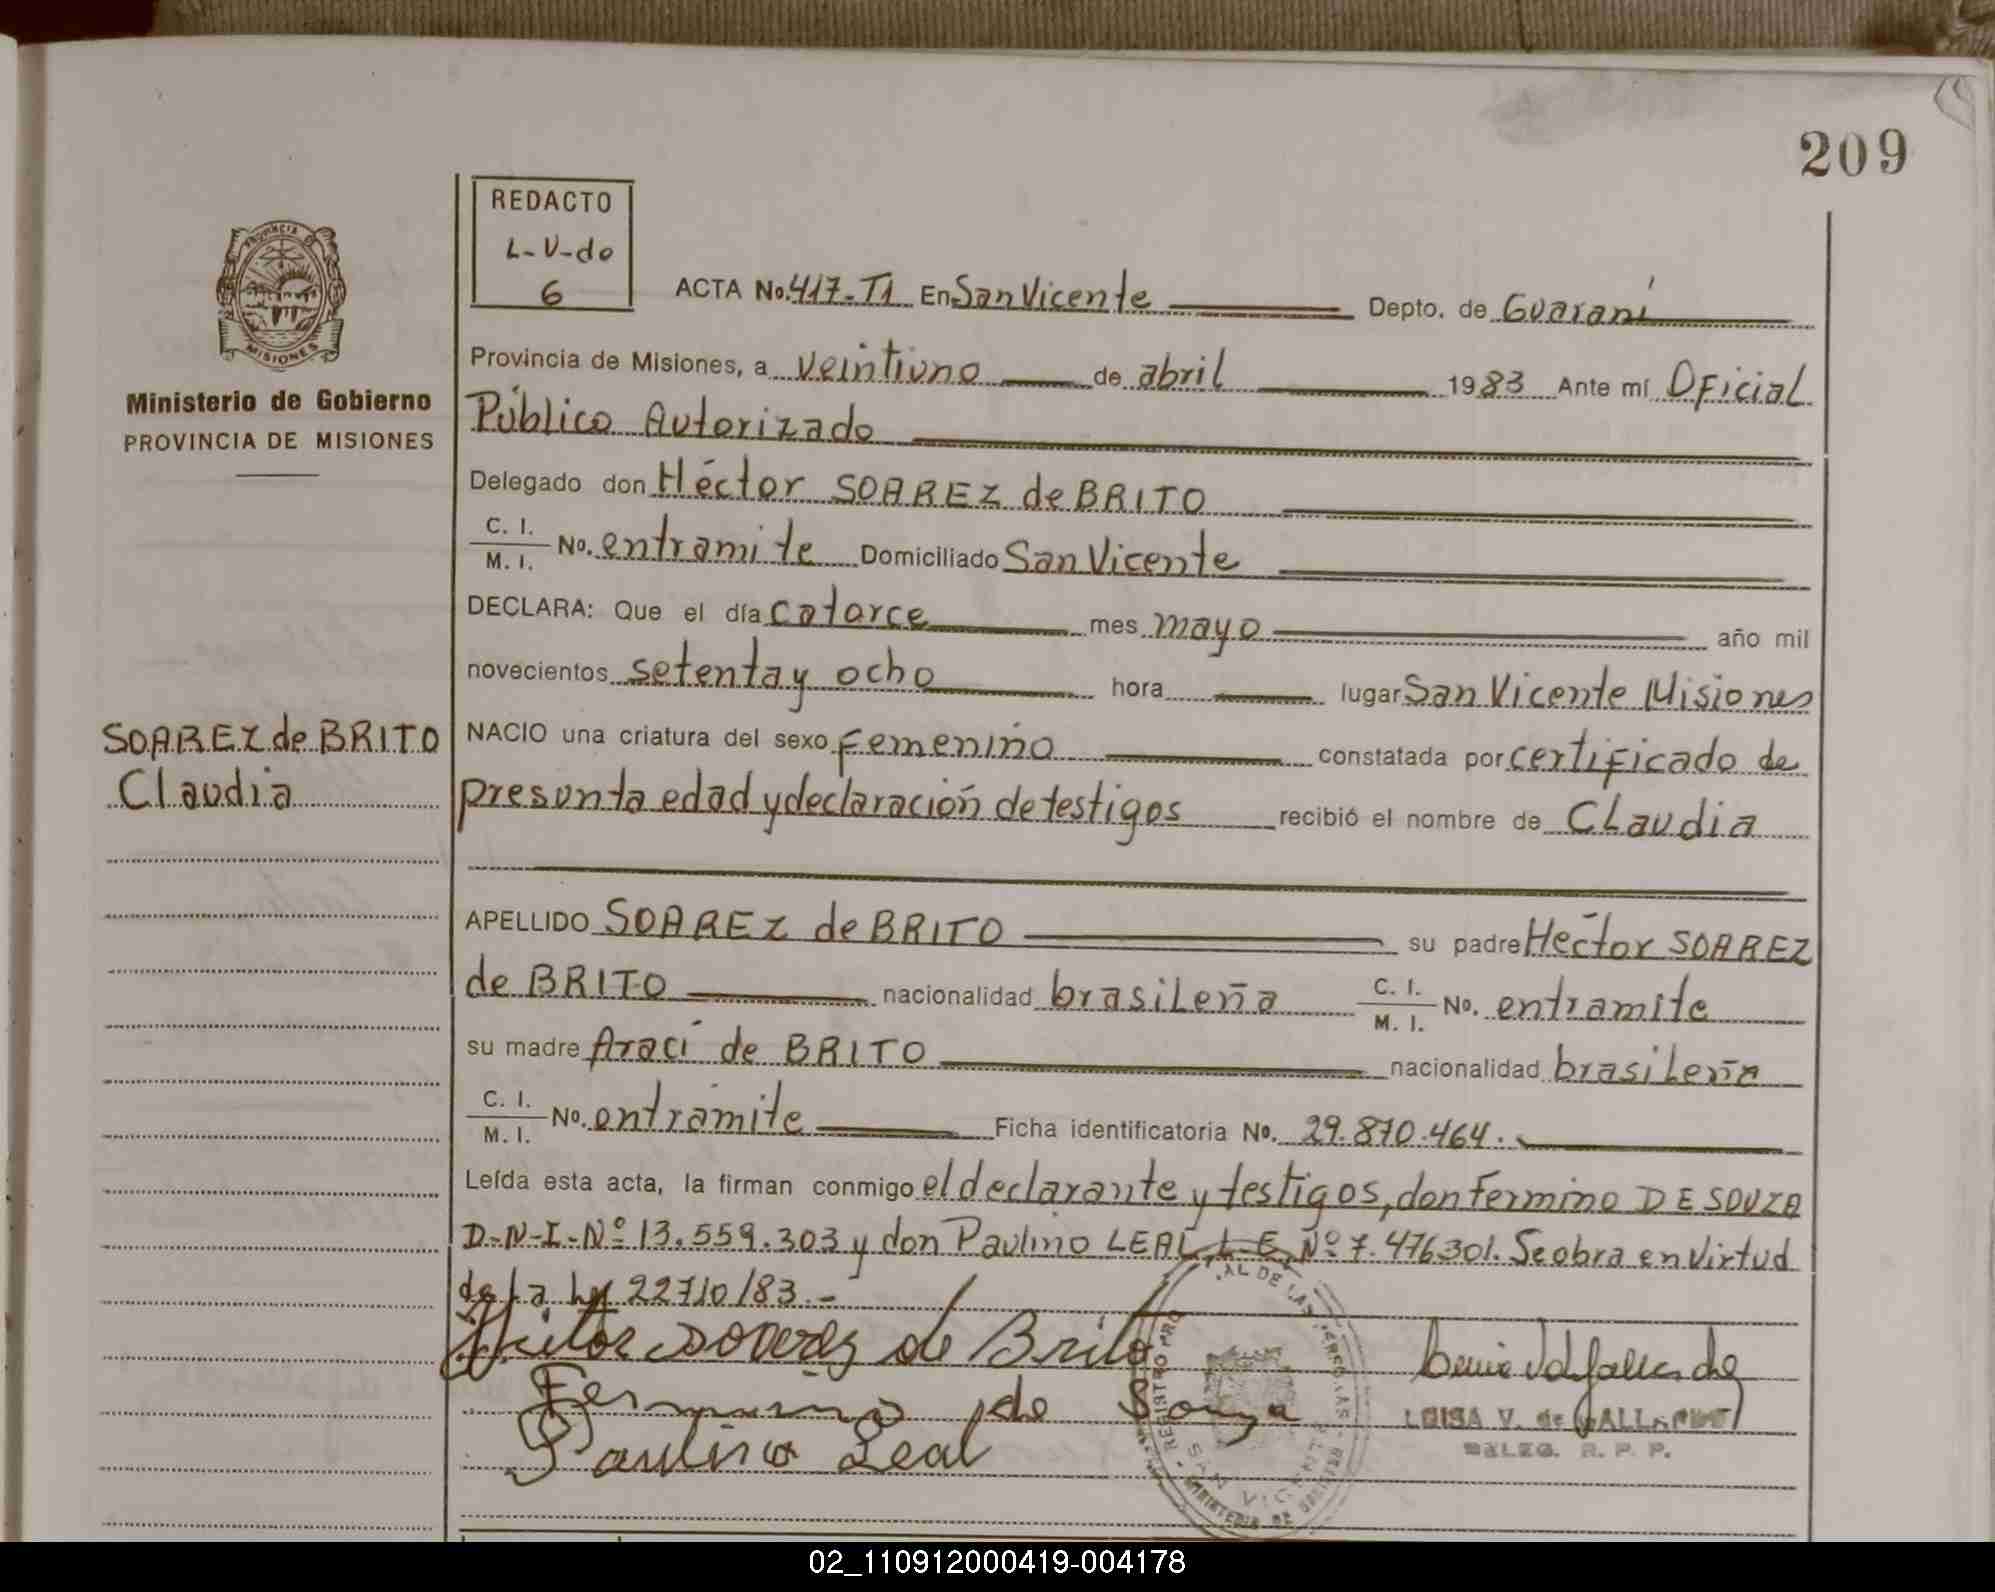 209
REDACTO
L-V-do
6
PROVINCIA DE
MISIONES
Ministerio de Gobierno
PROVINCIA DE MISIONES
ACTA No. 417-T1 En San Vicente Depto. de Guaraní
Provincia de Misiones, a veintiuno de abril 1983 Ante mí Oficial
Público Autorizado
Delegado don Héctor SOAREZ de BRITO
C. I.
M. I. No. entramite Domiciliado San Vicente
DECLARA: Que el día catorce mes mayo año mil
novecientos setenta y ocho hora lugar San Vicente Misiones
SOAREZ de BRITO
Claudia
NACIO una criatura del sexo Femenino constatada por certificado de
presunta edad y declaración de testigos recibió el nombre de Claudia
APELLIDO SOAREZ de BRITO su padre Héctor SOAREZ
de BRITO nacionalidad brasileña C. I.
M. I. No. entramite
su madre Araci de BRITO nacionalidad brasileña
C. I.
M. I. No. entramite Ficha identificatoria No. 29.870.464.
Leída esta acta, la firman conmigo el declarante y testigos, don Fermino DE SOUZA
D-N-I-Nº 13.559.303 y don Paulino LEAL L-E Nº 7.476301. Se obra en virtud
de la ley 22710/83.-
Héctor Soarez de Brito
Fermino de Souza
Paulino Leal
LUISA V. de
DELEG. R. P. P.
SAN VICENTE
02_110912000419-004178